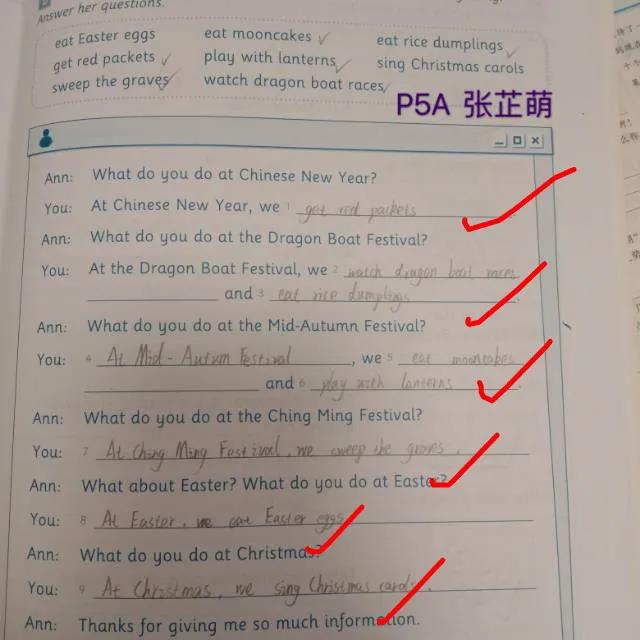 Answer her questions.
eat Easter eggs eat mooncakes eat rice dumplings
get red packets play with lanterns sing Christmas carols
sweep the graves watch dragon boat races
P5A 张芷萌
Ann: What do you do at Chinese New Year?
You: At Chinese New Year, we 1 get red packets
Ann: What do you do at the Dragon Boat Festival?
You: At the Dragon Boat Festival, we 2 watch dragon boat races
and 3 eat rice dumplings.
Ann: What do you do at the Mid-Autumn Festival?
You: 4 At Mid-Autumn Festival, we 5 eat mooncakes
and 6 play with lanterns.
Ann: What do you do at the Ching Ming Festival?
You: 7 At Ching Ming Festival, we sweep the graves.
Ann: What about Easter? What do you do at Easter?
You: 8 At Easter, we eat Easter eggs
Ann: What do you do at Christmas?
You: 9 At Christmas, we sing Christmas carols.
Ann: Thanks for giving me so much information.